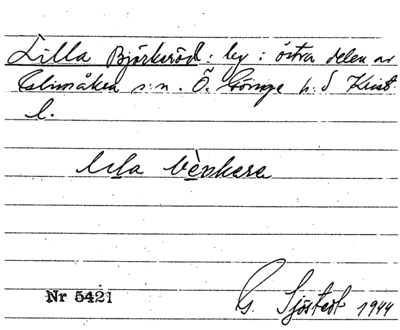 Lilla Björkeröd: ley: östra delen av
Glimåkra s:n. Ö. Göinge h:d Krist.
l.
lıla bèrkara
Nr 5421
G. Sjöstedt 1944